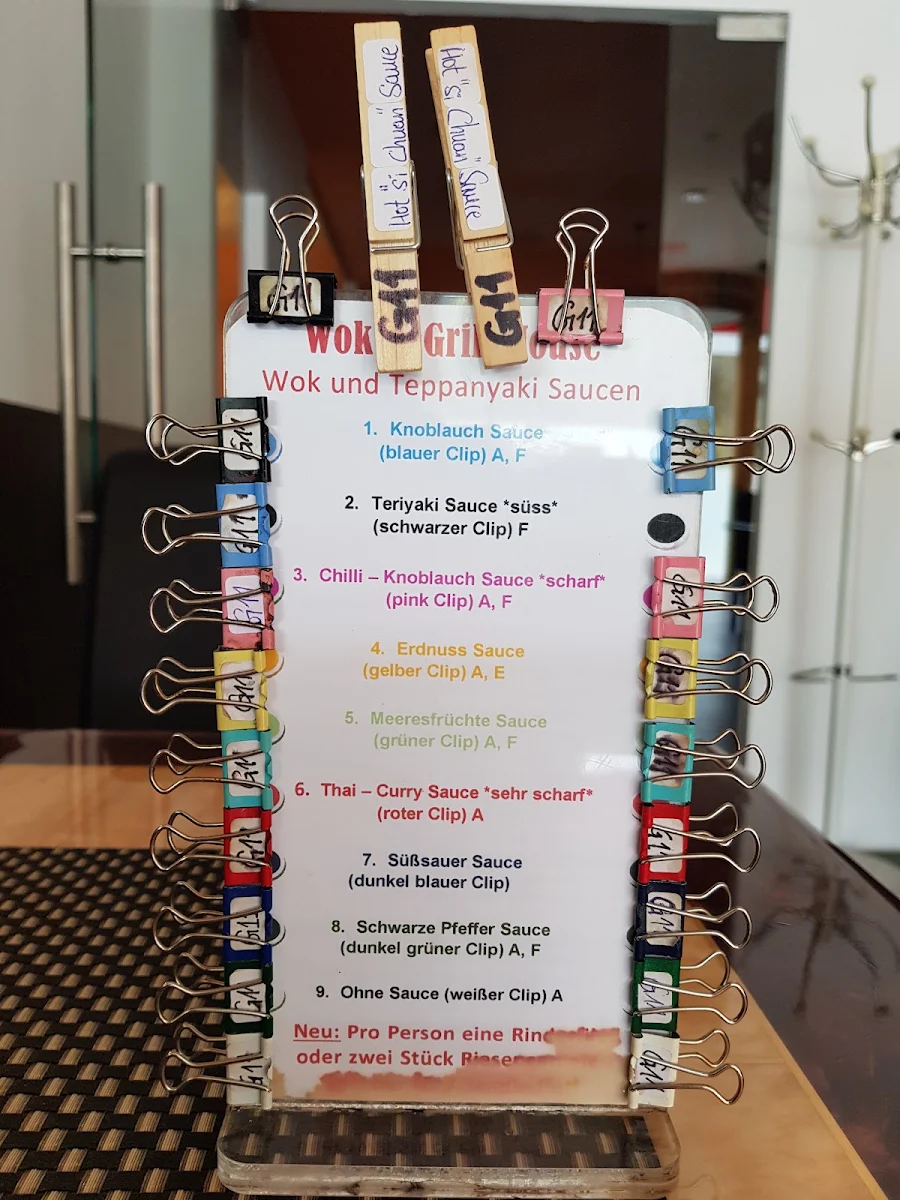 Hot "Si Chuan" Sauce
Hot "Si Chuan" Sauce
G11
G11
G11
G11
Wok Grill House
Wok und Teppanyaki Saucen
G11
1. Knoblauch Sauce
(blauer Clip) A, F
G11
G11
2. Teriyaki Sauce *süss*
(schwarzer Clip) F
G11
3. Chilli – Knoblauch Sauce *scharf*
(pink Clip) A, F
G11
G11
4. Erdnuss Sauce
(gelber Clip) A, E
G11
G11
5. Meeresfrüchte Sauce
(grüner Clip) A, F
G11
G11
6. Thai – Curry Sauce *sehr scharf*
(roter Clip) A
G11
G11
7. Süßsauer Sauce
(dunkel blauer Clip)
G11
G11
8. Schwarze Pfeffer Sauce
(dunkel grüner Clip) A, F
G11
9. Ohne Sauce (weißer Clip) A
G11
Neu: Pro Person eine
oder zwei Stück
G11
G11